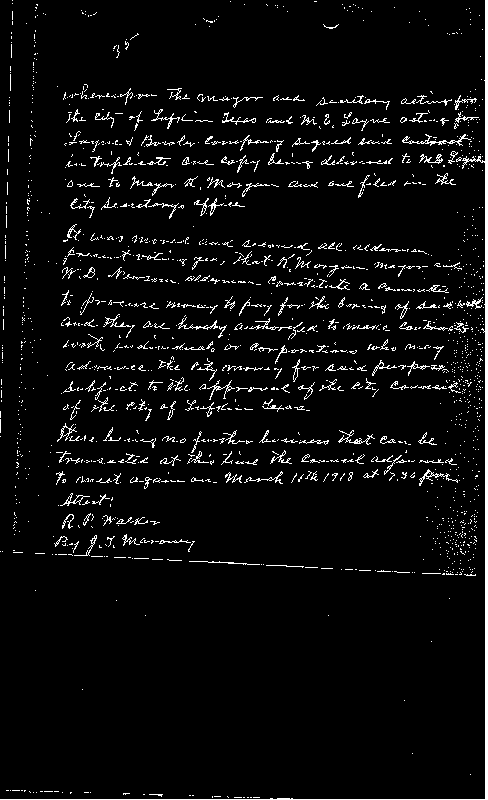 35
whereupon the mayor and secretary acting for
the City of Lufkin Texas and M.E. Layne acting for
Layne & Bowler Company signed said contract
in triplicate one copy being delivered to M.E. Layne
one to Mayor K. Morgan and one filed in the
City Secretarys office
It was moved and second, all alderman
present voting yes, that K. Morgan mayor and
W.D. Newsom alderman constitute a committee
to procure money to pay for the boring of said well
and they are hereby authorized to make contracts
with individuals or corporations who may
advance the city money for said purpose,
subject to the approval of the City Council
of the City of Lufkin Texas
There being no further business that can be
transacted at this time the council adjourned
to meet again on March 11th 1918 at 7.30 p.m.
Attest:
R.P. Walker
By J.T. Maroney